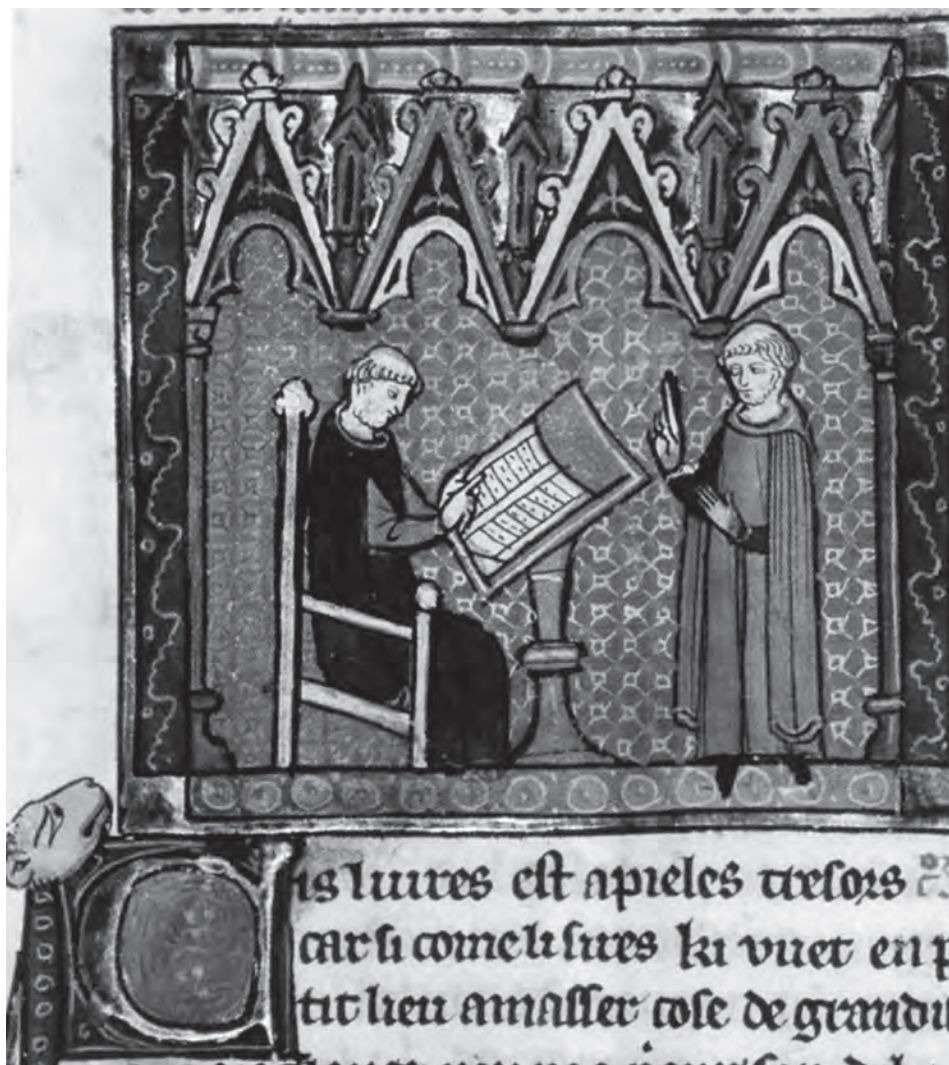 Cis liures est apieles tresors
car si come li sires ki vuet en p
tit lieu amasser cose de grandi